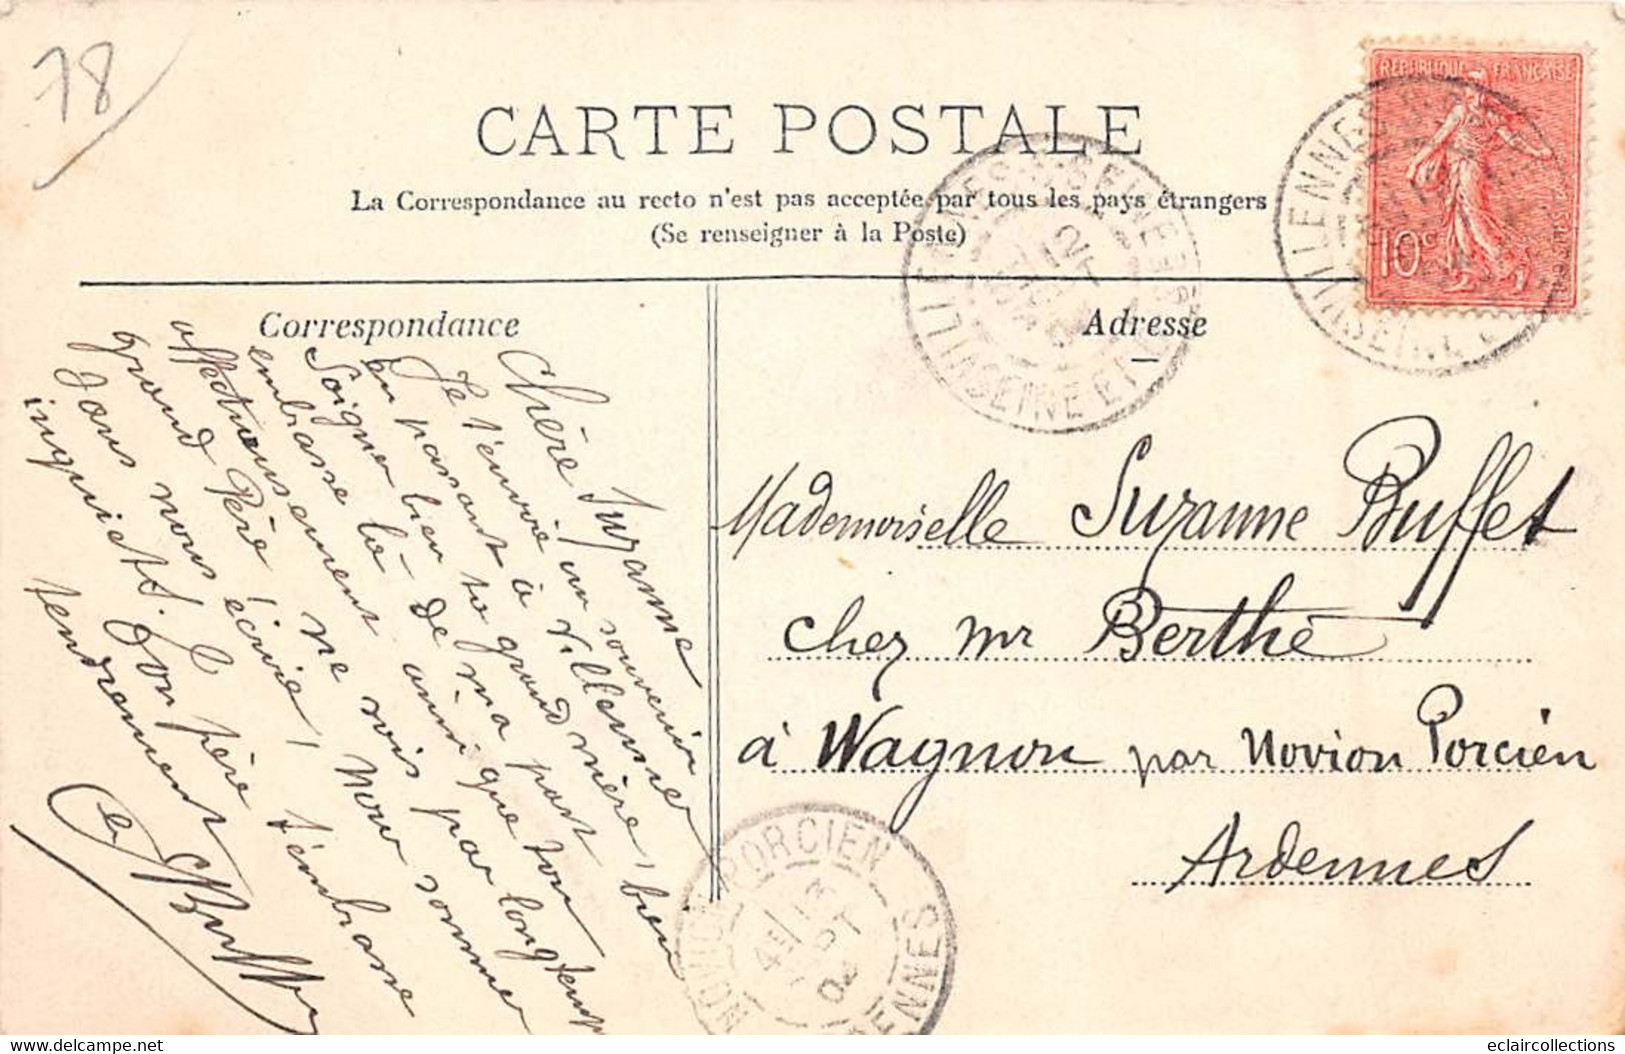 78
CARTE POSTALE
La Correspondance au recto n'est pas acceptée par tous les pays étrangers
(Se renseigner à la Poste)
RÉPUBLIQUE FRANÇAISE
10c
Correspondance
Adresse
Chère Suzanne
Je t'envoie un souvenir
en passant à Villennes
Soigne bien ta grand mère, bien
embrasse là de ma part
affectueusement ainsi que ton
grand Père! ne sois pas longtemps
sans nous écrire, nous sommes
inquiets. Ton père t'embrasse
tendrement
Buffet
Mademoiselle Suzanne Buffet
chez Mr Berthe
à Wagnon par Novion Porcien
Ardennes
VILLENNES S. SEINE
SEINE ET
12
NOVION PORCIEN
ARDENNES
13
04
www.delcampe.net
eclaircollections